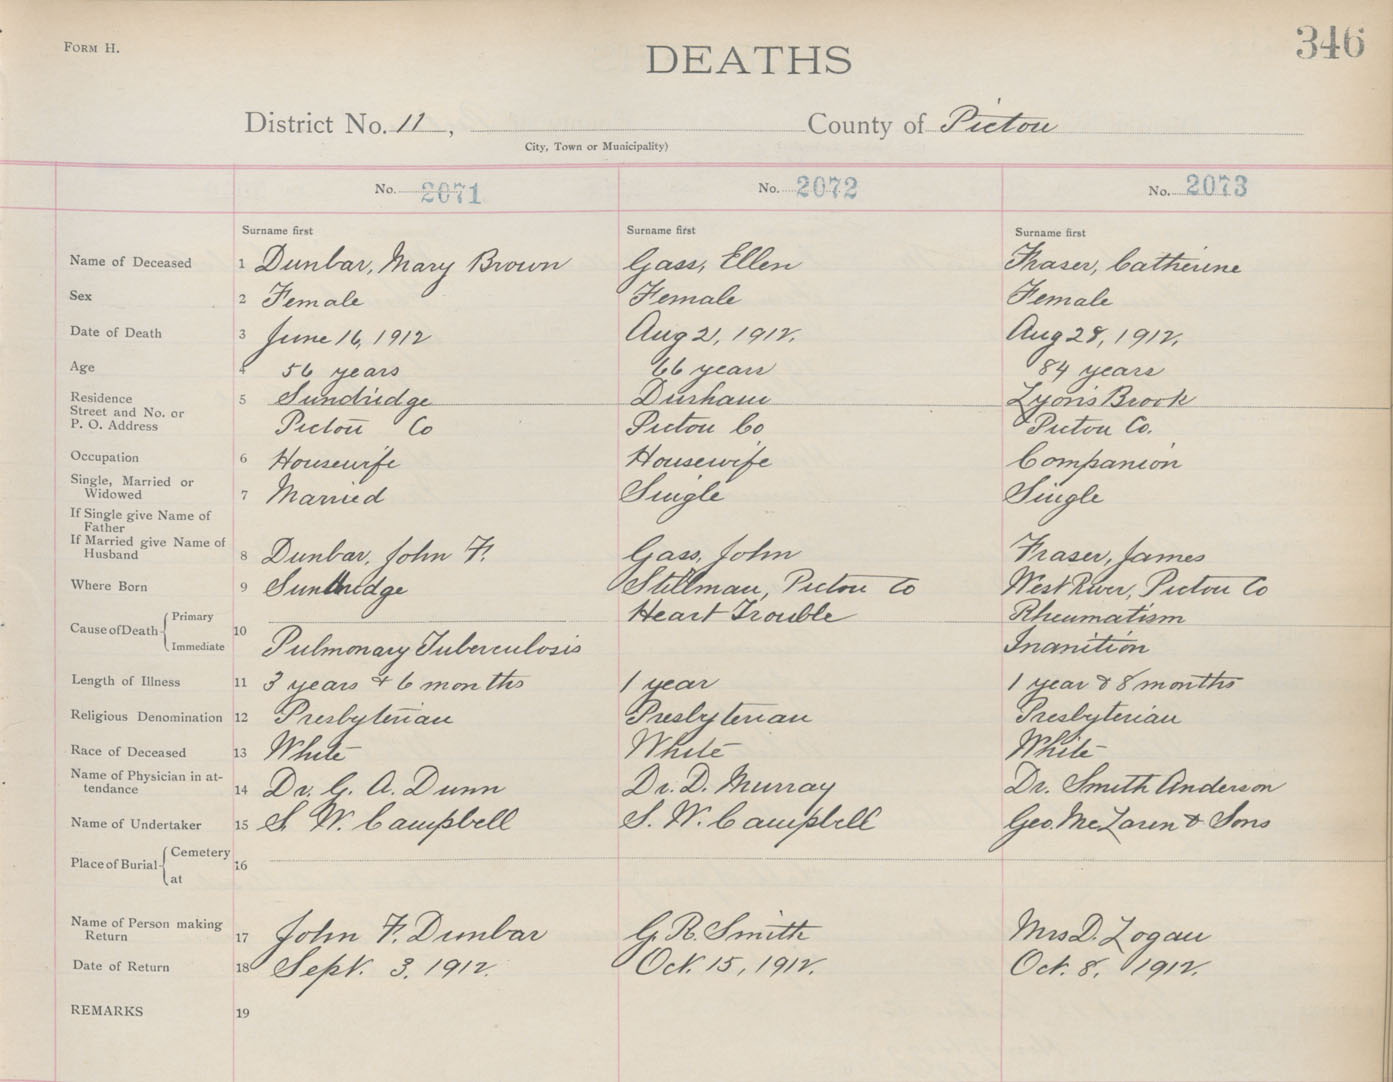 Form H.
DEATHS
346
District No. 11, County of Pictou
City, Town or Municipality)
No. 2071 No. 2072 No. 2073
Surname first Surname first Surname first
Name of Deceased 1 Dunbar, Mary Brown Gass, Ellen Fraser, Catherine
Sex 2 Female Female Female
Date of Death 3 June 16, 1912 Aug 21, 1912. Aug 28, 1912.
Age 4 56 years 66 years 84 years
Residence 5 Sundridge Durham Lyons Brook
Street and No. or
P. O. Address Pictou Co Pictou Co Pictou Co.
Occupation 6 Housewife Housewife Companion
Single, Married or
Widowed 7 Married Single Single
If Single give Name of
Father
If Married give Name of
Husband 8 Dunbar, John F. Gass, John Fraser, James
Where Born 9 Sundridge Stillman, Pictou Co West River, Pictou Co
Cause of Death Primary 10 Heart Trouble Rheumatism
Immediate Pulmonary Tuberculosis Inanition
Length of Illness 11 3 years & 6 months 1 year 1 year & 8 months
Religious Denomination 12 Presbyterian Presbyterian Presbyterian
Race of Deceased 13 White White White
Name of Physician in at-
tendance 14 Dr. G. A. Dunn Dr. D. Murray Dr. Smith Anderson
Name of Undertaker 15 S. W. Campbell S. W. Campbell Geo. McLaren & Sons
Place of Burial Cemetery 16
at
Name of Person making
Return 17 John F. Dunbar G. R. Smith Mrs D. Logan
Date of Return 18 Sept. 3, 1912. Oct. 15, 1912. Oct. 8, 1912.
REMARKS 19